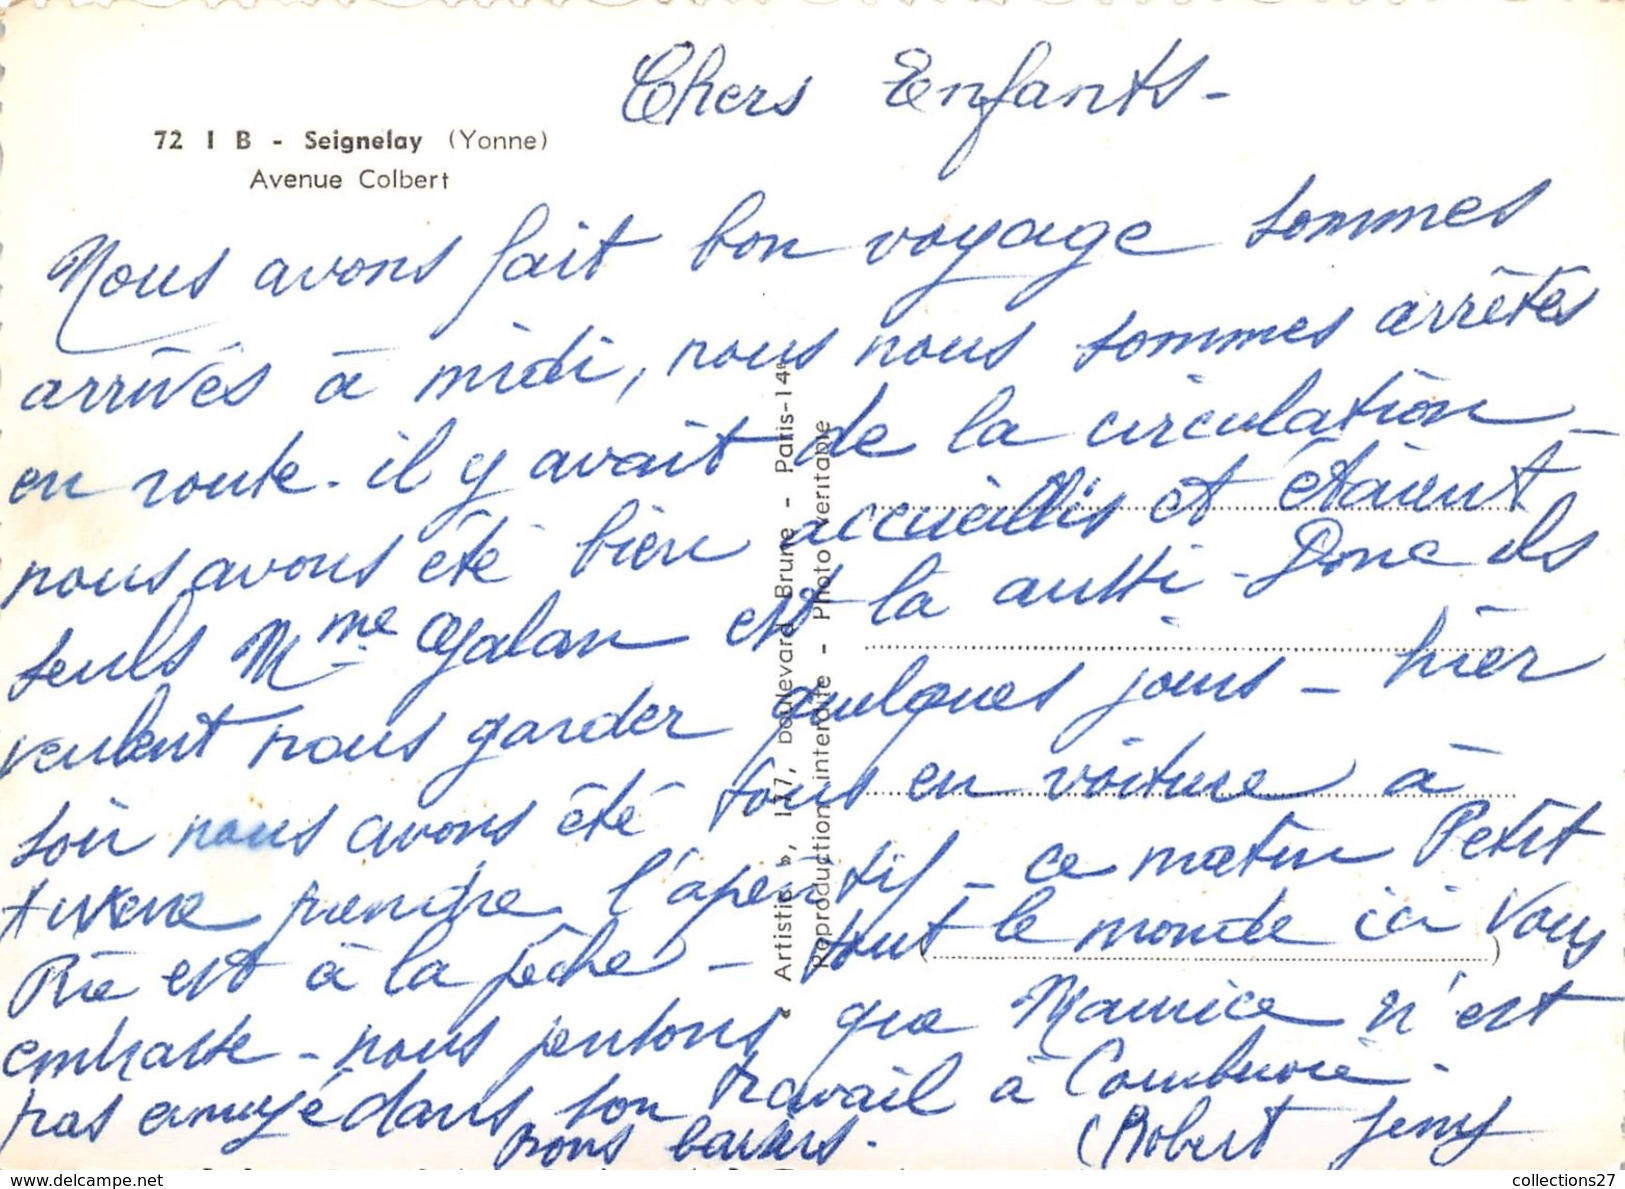 Chers Enfants -
72 I B - Seignelay (Yonne)
Avenue Colbert
Nous avons fait bon voyage sommes
arrivés à midi, nous nous sommes arrêtés
en route. il y avait de la circulation -
nous avons été bien accueillis et étaient
seuls Mme est là aussi - Donc ils
veulent nous garder quelques jours - hier
soir nous avons été tous en voiture à
prendre l'apéritif - ce matin Petit
est à la pêche - tout le monde ici vous
embrasse - nous pensons que Maurice n'est
pas ennuyé dans son travail à Courbevoie.
bons baisers.
(Robert Jenny
« Artistic », 177, boulevard Brune - Paris-14e
Reproduction interdite - Photo véritable
collections27